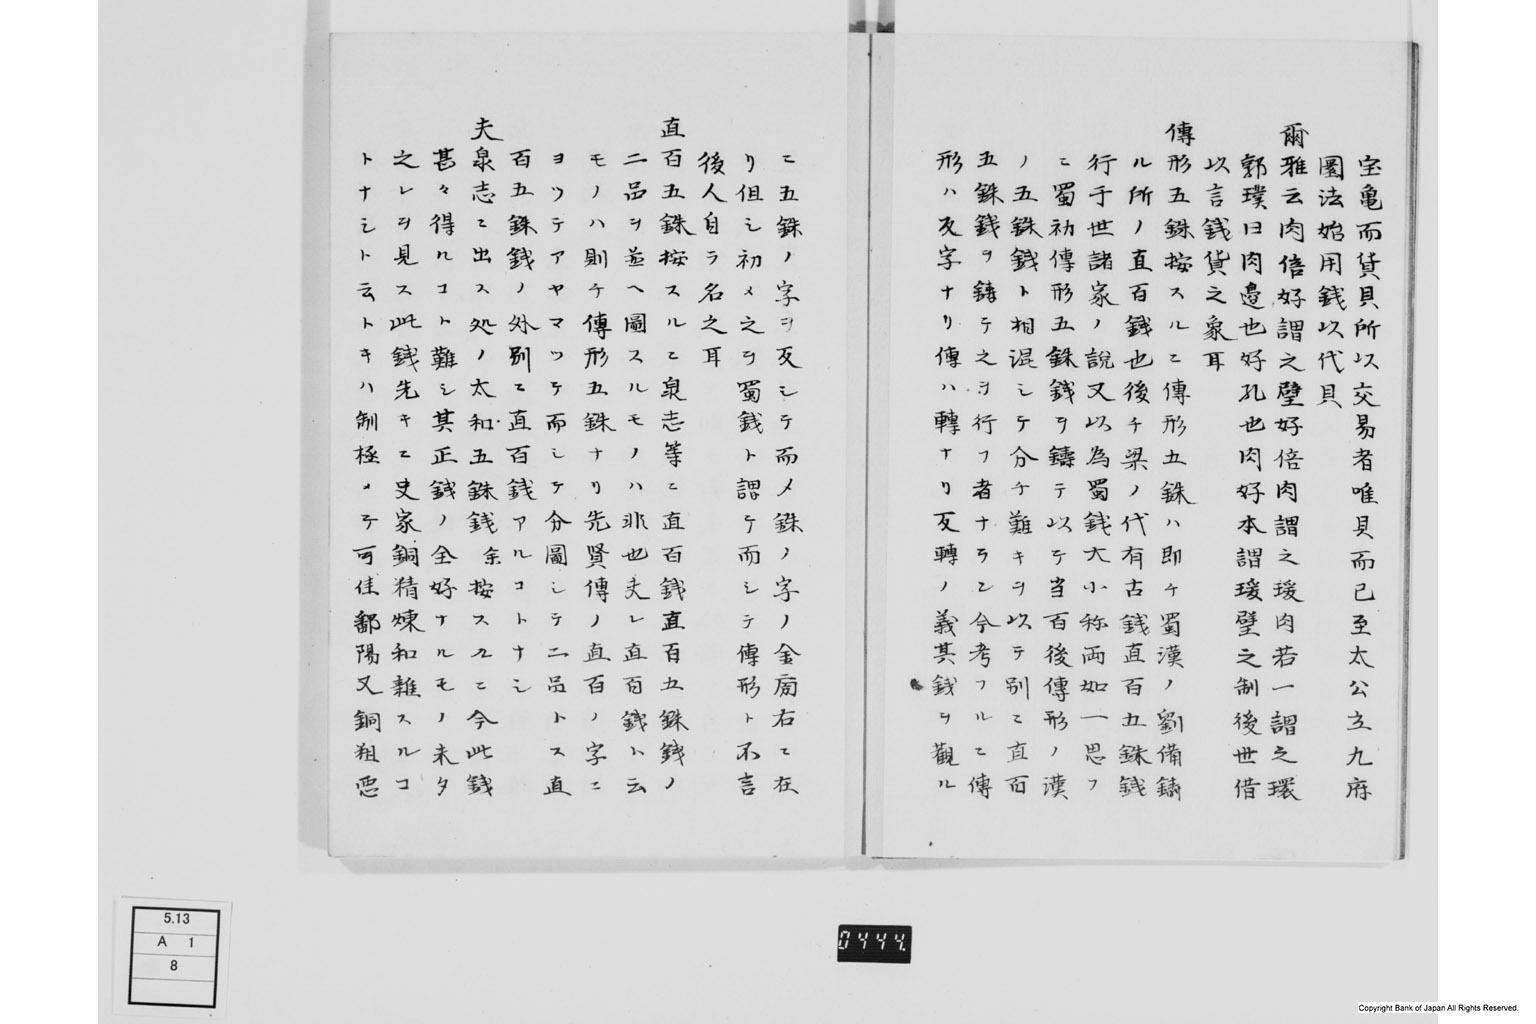 宝亀而貨貝所以交易者唯貝而已至太公立九府
圜法始用銭以代貝
爾雅云肉倍好謂之璧好倍肉謂之瑗肉若一謂之環
郭璞曰肉邉也好孔也肉好本謂瑗璧之制後世借
以言銭貨之象耳
傳形五銖按スルニ傳形五銖ハ即チ蜀漢ノ劉備鋳
ル所ノ直百銭也後チ梁ノ代有古銭直百五銖銭
行于世諸家ノ説又以為蜀銭大小称両如一思フ
ニ蜀初傳形五銖銭ヲ鑄テ以テ当百後傳形ノ漢
ノ五銖銭ト相混シテ分チ難キヲ以テ別ニ直百
五銖銭ヲ鋳テ之ヲ行フ者ナラン今考フルニ傳
形ハ反字ナリ傳ハ轉ナリ反轉ノ義其銭ヲ觀ル
ニ五銖ノ字ヲ反シテ而メ銖ノ字ノ金扁右ニ在
リ但シ初メ之ヲ蜀銭ト謂テ而シテ傳形ト不言
後人自ラ名之耳
直百五銖按スルニ泉志等ニ直百銭直百五銖銭ノ
二品ヲ並ヘ圖スルモノハ非也夫レ直百銭ト云
モノハ則チ傳形五銖ナリ先賢傳ノ直百ノ字ニ
ヨツテアヤマツテ而シテ分圖シテ二品トス直
百五銖銭ノ外別ニ直百銭アルコトナシ
夫泉志ニ出ス処ノ太和五銖銭余按スルニ今此銭
甚々得ルコト難シ其正銭ノ全好ナルモノ未タ
之レヲ見ス此銭先キニ史家銅精煉和雜スルコ
トナシト云トキハ制極メテ可佳鄱陽又銅粗悪
5.13
A 1
8
0444.
Copyright Bank of Japan All Rights Reserved.